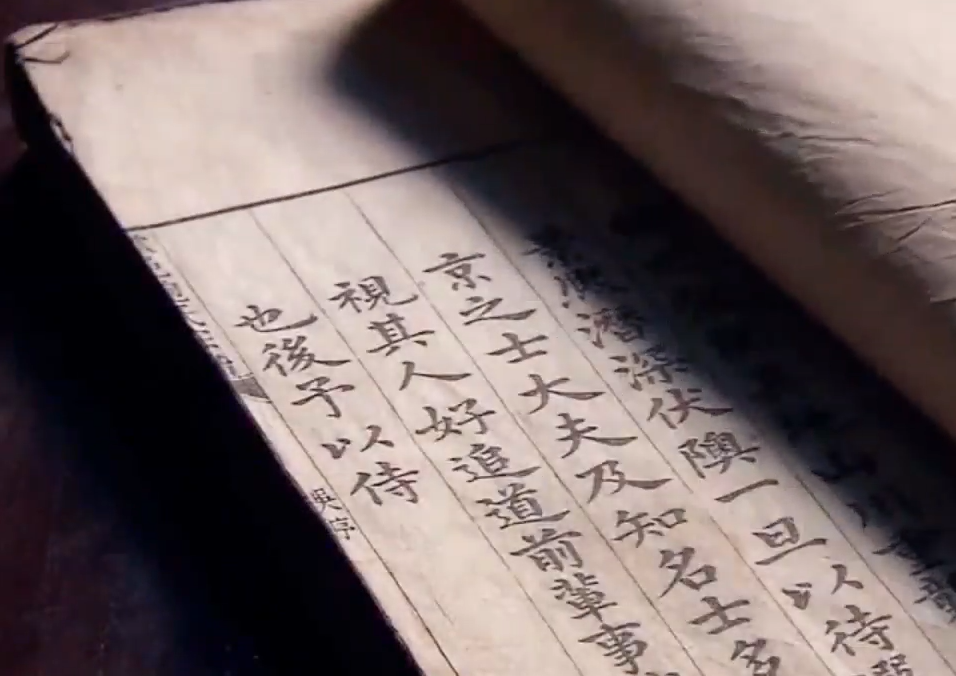 山川
潛深伏隩一旦以待
京之士大夫及知名士多
視其人好追道前輩事
也後予以侍
吳序